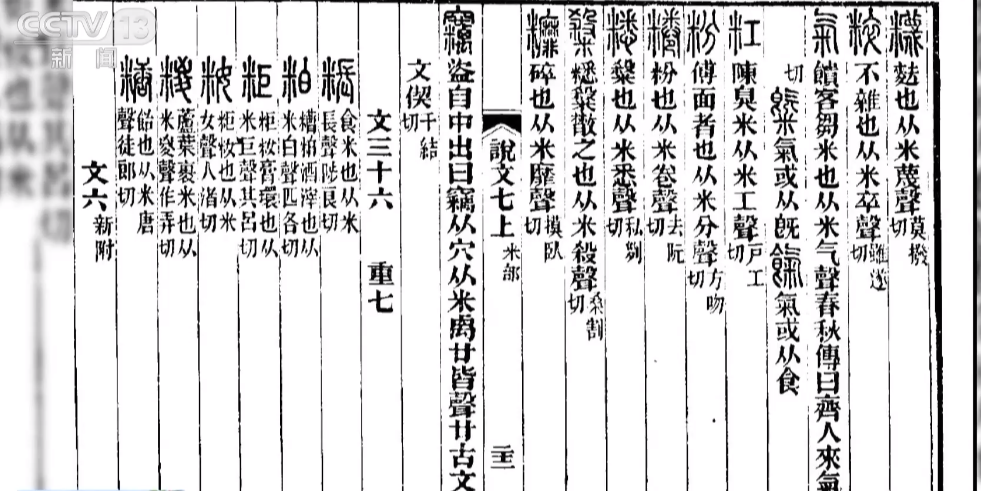 CCTV 13
新闻
麩也从米蔑聲莫撥切
粹不雜也从米卒聲雖遂切
氣饋客芻米也从米气聲春秋傳曰齊人來氣
切 氣或从既 餼氣或从食
粠陳臭米从米工聲戶工切
粉傅面者也从米分聲方吻切
粉也从米卷聲去阮切
也从米悉聲私列切
散之也从米殺聲桑割切
碎也从米靡聲摸臥切
說文七上 米部
竊盜自中出曰竊从穴从米禼廿皆聲廿古文
文偰千結切
文三十六 重七
粻食米也从米長聲陟良切
粕糟粕酒滓也从米白聲匹各切
粔粔籹膏環也从米巨聲其呂切
籹粔籹也从米女聲人渚切
糉蘆葉裹米也从米㚇聲作弄切
糖飴也从米唐聲徒郎切
文六 新附